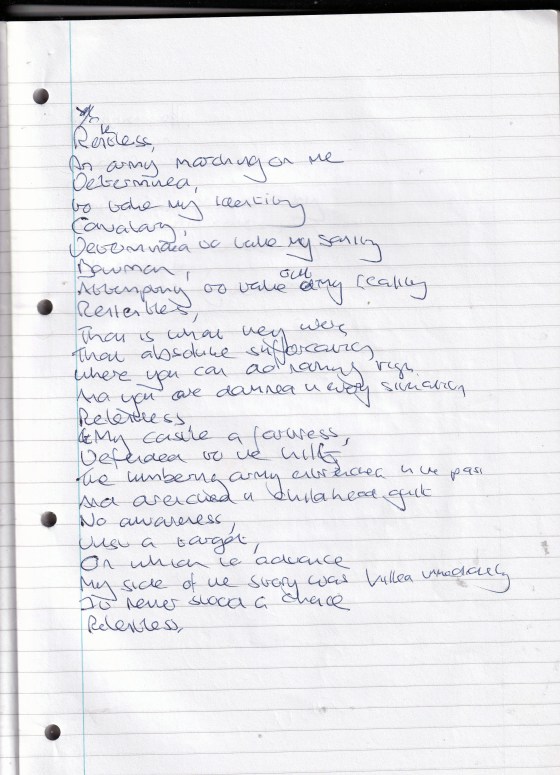 Relentless,
An army marching on me
Determined,
to take my identity
Cavalary,
Determined to take my sanity
Bowman,
Attempting to take out my reality
Relentless,
That is what they were
That absolute suffocation
where you can do nothing right
And you are damned in every situation
Relentless
My castle a fortress,
Defended to the hilt,
The lumbering army entrenched in the past
And drenched in childhood guilt
No awareness,
Just a target,
On which to advance
My side of the story was killed immediately
It never stood a chance
Relentless,